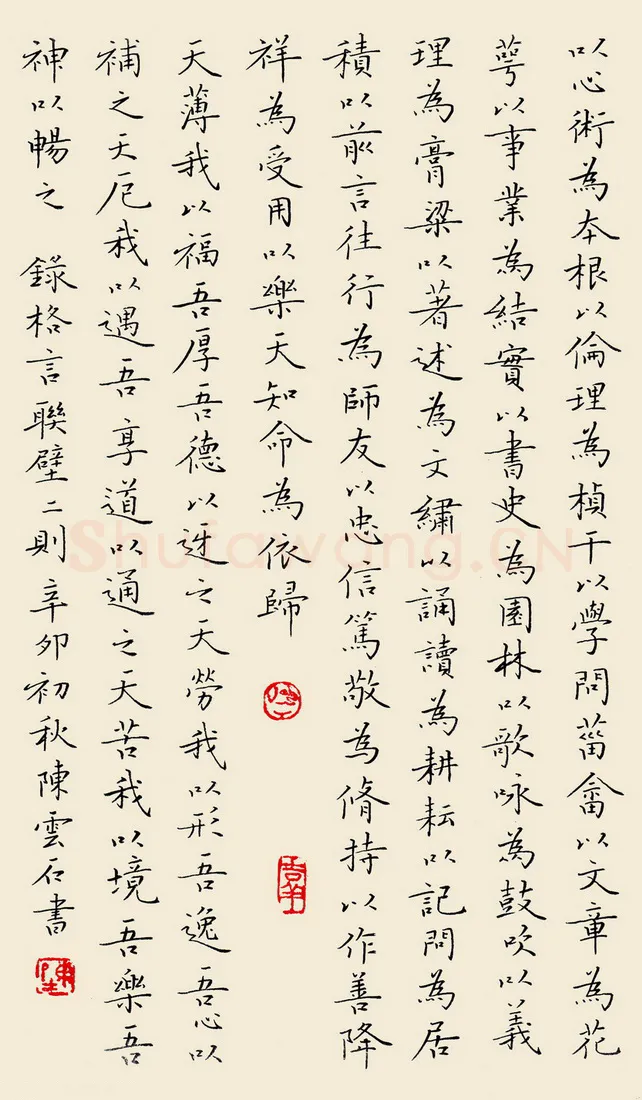 以心術為本根以倫理為楨干以學問菑畬以文章為花
萼以事業為結實以書史為園林以歌咏為鼓吹以義
理為膏粱以著述為文繡以誦讀為耕耘以記問為居
積以前言往行為師友以忠信篤敬為脩持以作善降
祥為受用以樂天知命為依歸
天薄我以福吾厚吾德以迓之天勞我以形吾逸吾心以
補之天厄我以遇吾享道以通之天苦我以境吾樂吾
神以暢之 錄格言聯壁二則辛卯初秋陳雲石書
Shufawang.CN